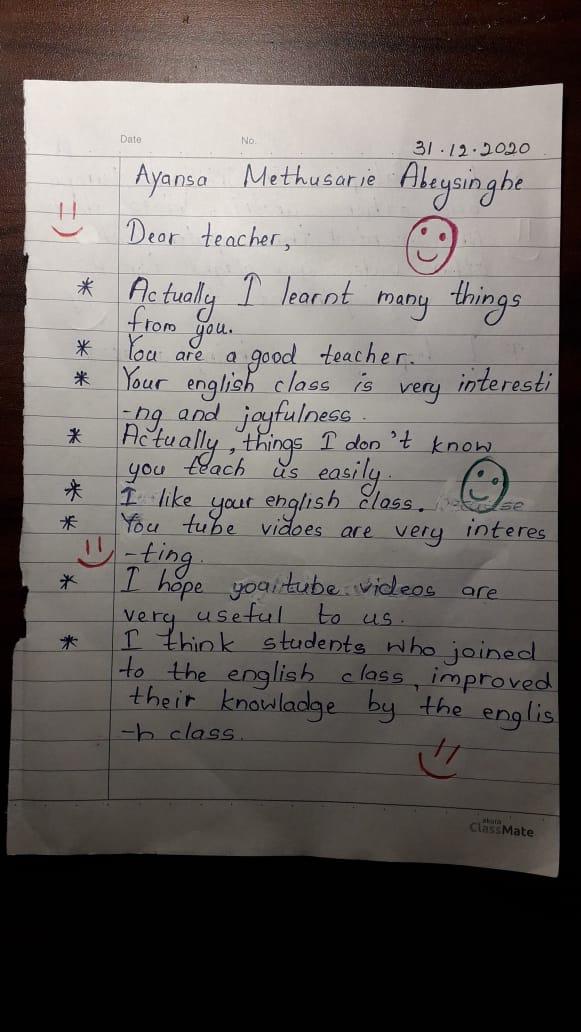 Date No.
31.12.2020
Ayansa Methusarie Abeysinghe
Dear teacher,
* Actually I learnt many things
from you.
* You are a good teacher.
* Your english class is very interesti
-ng and joyfulness.
* Actually, things I don't know
you teach us easily.
* I like your english class. because
* You tube vidoes are very interes
-ting.
* I hope youtube videos are
very useful to us.
* I think students who joined
to the english class, improved
their knowladge by the englis
-h class.
akura
ClassMate